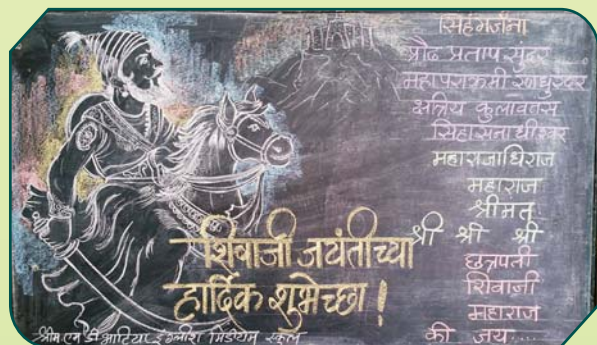 सिंहगर्जना
प्रौढ प्रताप सुंदर
महापराक्रमी रणधुरंदर
क्षत्रिय कुलावतंस
सिंहासनाधीश्वर
महाराजाधिराज
महाराज
श्रीमत्
श्री श्री श्री
छत्रपती
शिवाजी
महाराज
की जय....
शिवाजी जयंतीच्या
हार्दिक शुभेच्छा!
इंग्लीश मिडीयम स्कूल